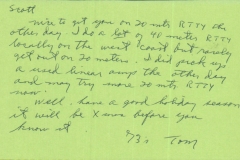 Scott
nice to get you on 20 mtrs RTTY the
other day. I do a lot of 40 meters RTTY
locally on the west coast but rarely
get out on 20 meters. I did pick up
a used linear amp the other day
and may try more 20 mtrs RTTY
now.
Well, have a good holiday season
it will be Xmas before you
know it
73s Tom